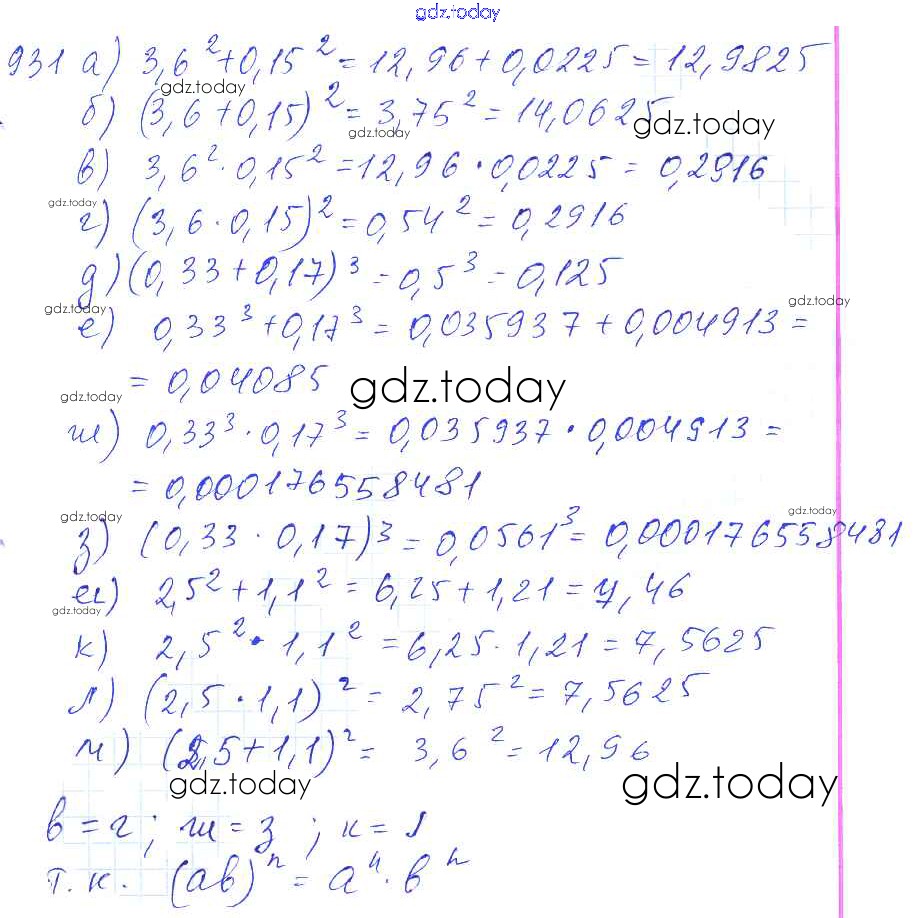 gdz.today
931 а) 3,6² + 0,15² = 12,96 + 0,0225 = 12,9825
gdz.today
б) (3,6 + 0,15)² = 3,75² = 14,0625
gdz.today
gdz.today
в) 3,6² · 0,15² = 12,96 · 0,0225 = 0,2916
gdz.today
г) (3,6 · 0,15)² = 0,54² = 0,2916
д) (0,33 + 0,17)³ = 0,5³ = 0,125
gdz.today
gdz.today
е) 0,33³ + 0,17³ = 0,035937 + 0,004913 =
= 0,04085
gdz.today
gdz.today
ж) 0,33³ · 0,17³ = 0,035937 · 0,004913 =
= 0,000176558481
gdz.today
gdz.today
з) (0,33 · 0,17)³ = 0,0561³ = 0,000176558481
и) 2,5² + 1,1² = 6,25 + 1,21 = 7,46
gdz.today
к) 2,5² · 1,1² = 6,25 · 1,21 = 7,5625
л) (2,5 · 1,1)² = 2,75² = 7,5625
м) (2,5 + 1,1)² = 3,6² = 12,96
gdz.today
gdz.today
в = г; ж = з; к = л
т.к. (ab)ⁿ = aⁿ · bⁿ